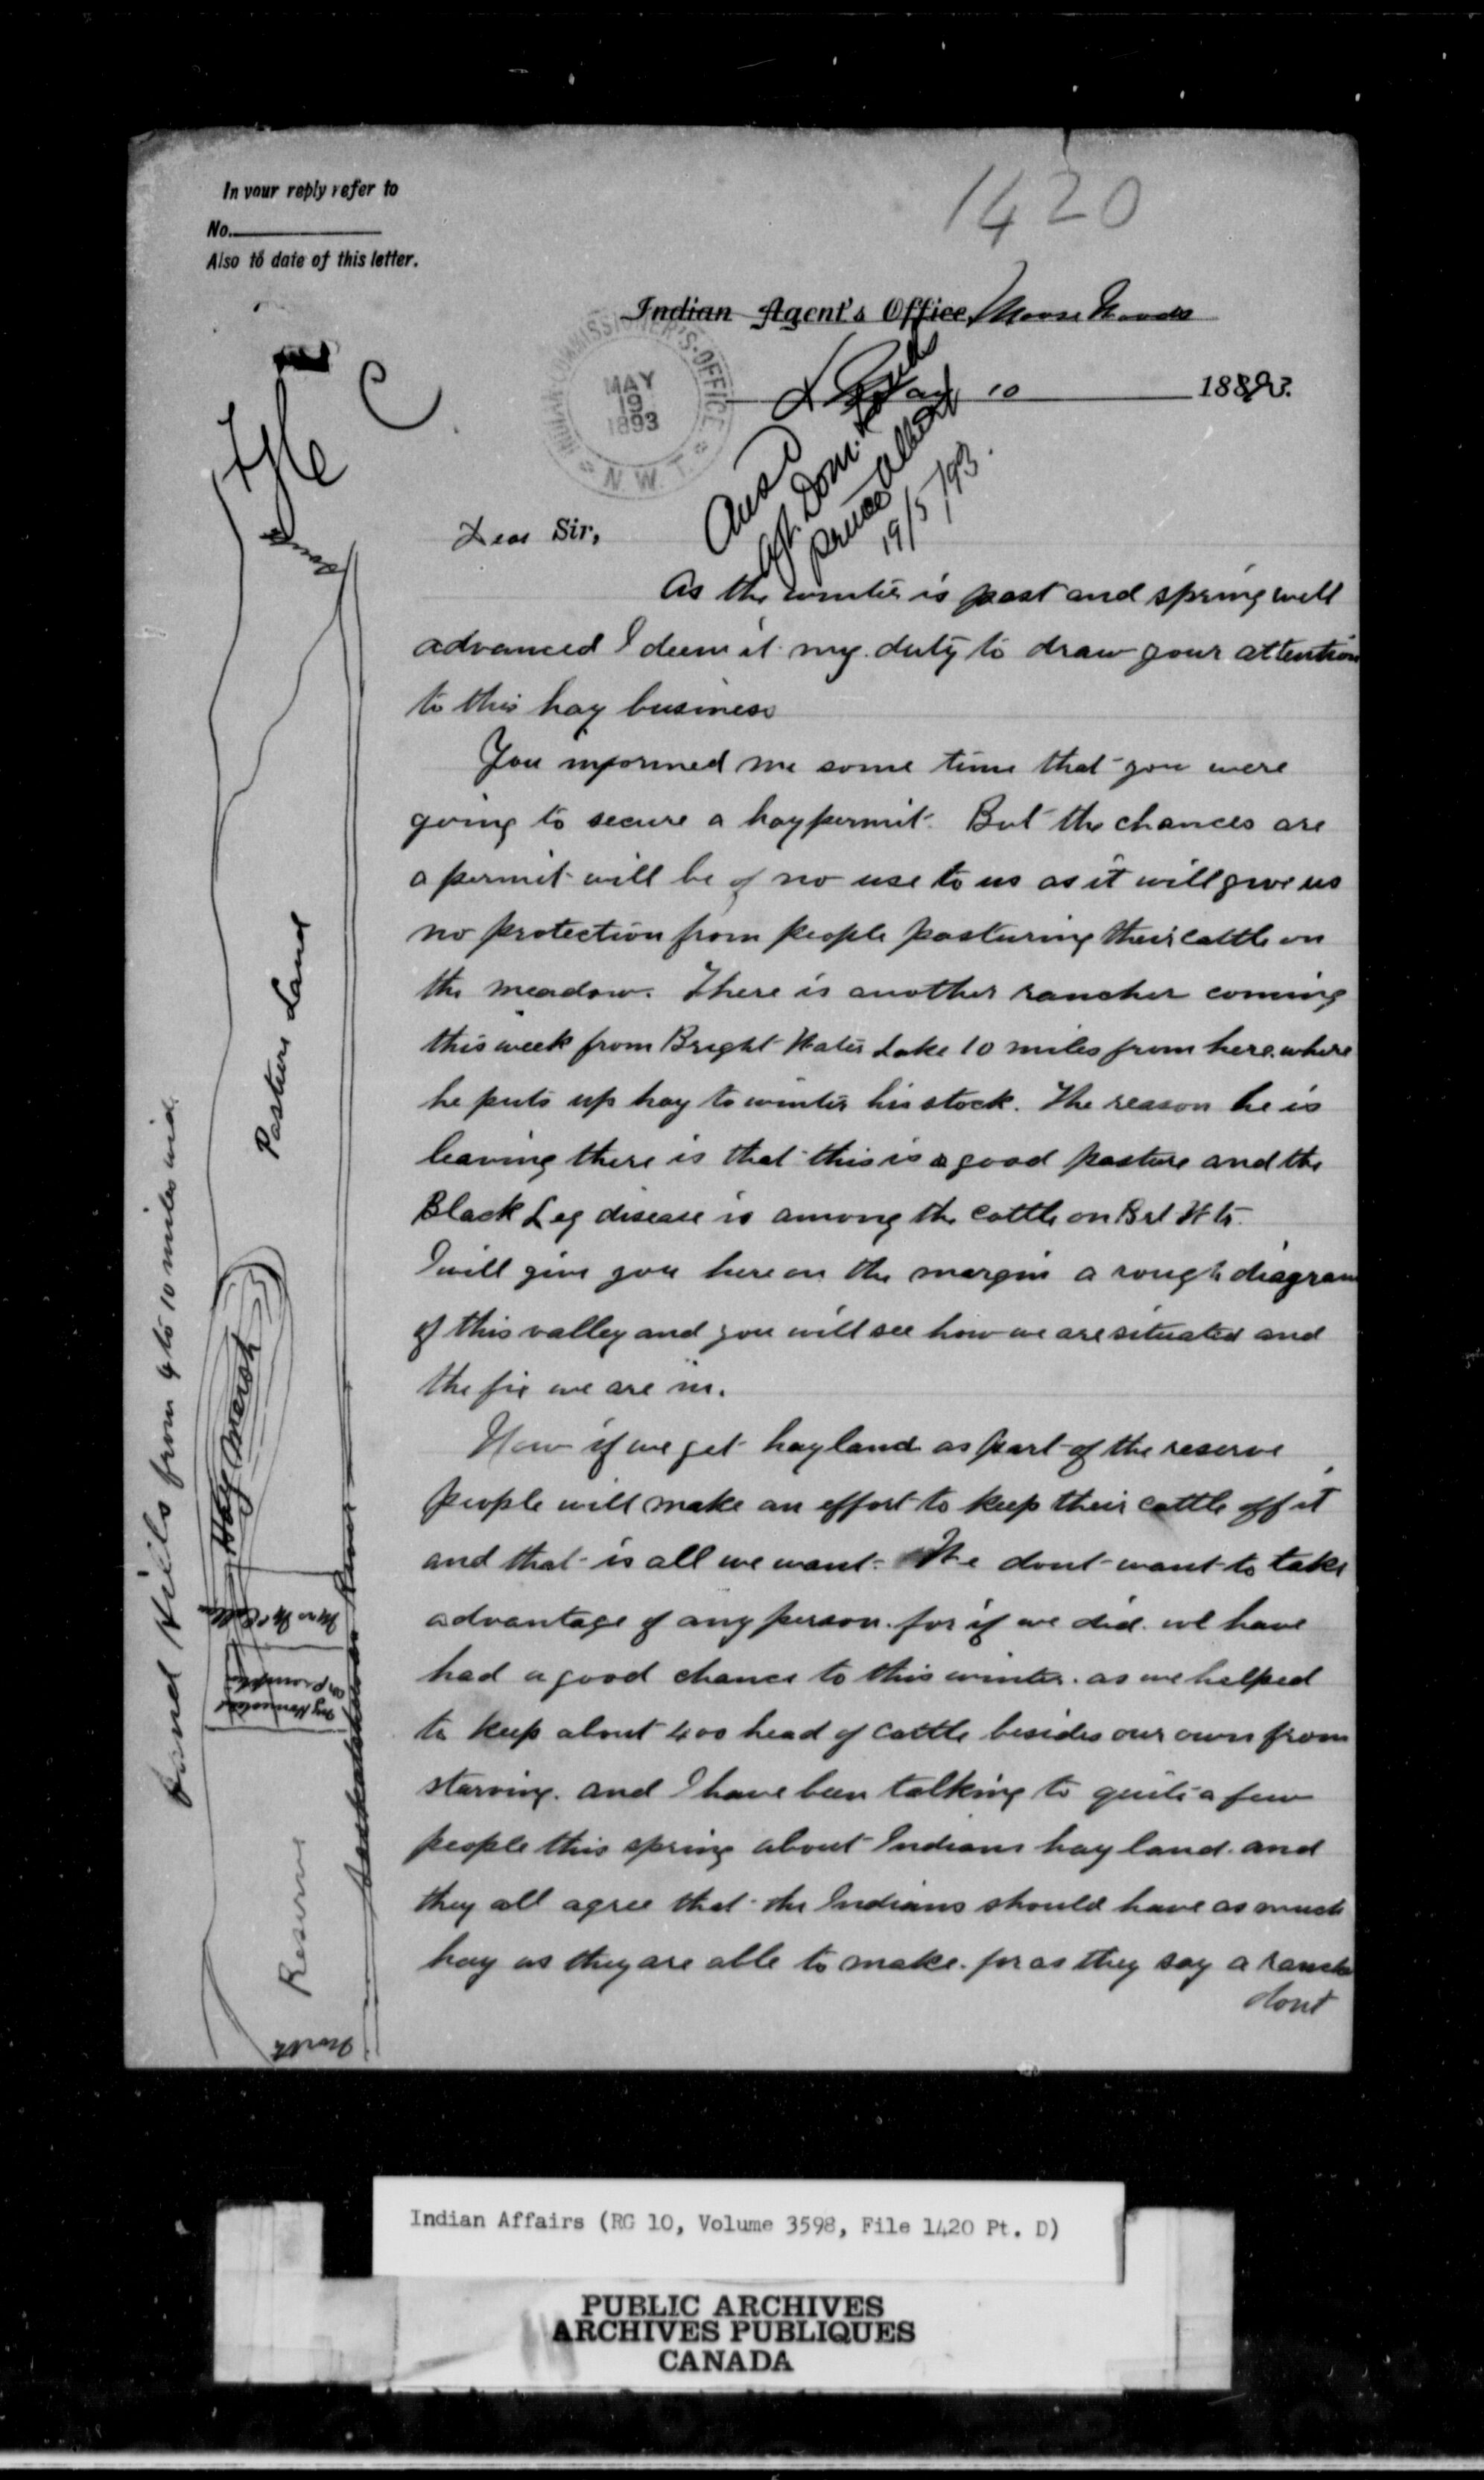 In your reply refer to
No.
Also to date of this letter.
1420
Indian Agent's Office, Moose Woods
May 10 1893.
INDIAN COMMISSIONER'S OFFICE
MAY
19
1893
N. W. T.
Ansd
Agt. Dom. Lands
Prince Albert
19/5/93.
File C
Dear Sir,
As the winter is past and spring well
advanced I deem it my duty to draw your attention
to this hay business
You informed me some time that you were
going to secure a hay permit. But the chances are
a permit will be of no use to us as it will give us
no protection from people pasturing their cattle on
the meadow. There is another rancher coming
this week from Bright Water Lake 10 miles from here where
he puts up hay to winter his stock. The reason he is
leaving there is that this is a good pasture and the
Black Leg disease is among the cattle on Brt Wtr.
I will give you here on the margin a rough diagram
of this valley and you will see how we are situated and
the fix we are in.
Now if we get hay land as part of the reserve
people will make an effort to keep their cattle off it
and that is all we want. We dont want to take
advantage of any person for if we did we have
had a good chance to this winter. as we helped
to keep about 400 head of cattle besides our own from
starving. and I have been talking to quite a few
people this spring about Indians hay land. and
they all agree that the Indians should have as much
hay as they are able to make. for as they say a ranche
dont
Sand Hills from 4 to 10 miles wide.
South
Pasture Land
Hay Marsh
My Homestead
Saskatchewan River
Reserve
North
Indian Affairs (RG 10, Volume 3598, File 1420 Pt. D)
PUBLIC ARCHIVES
ARCHIVES PUBLIQUES
CANADA